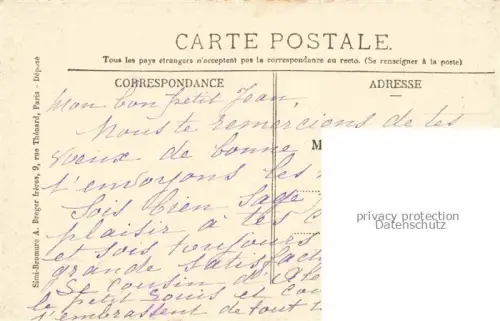 CARTE POSTALE.
Tous les pays étrangers n'acceptent pas la correspondance au recto. (Se renseigner à la poste)
CORRESPONDANCE
ADRESSE
Simi-Bromure A. Breger frères, 9, rue Thénard, Paris - Déposé
Mon bon petit Jean,
Nous te remercions de tes
voeux de bonne
t'envoyons les
M
Sois bien sage
plaisir à tes
et sois toujours
grande satisfact
Se cousin d'
le petit Louis et
t'embrassent de tout
privacy protection
Datenschutz